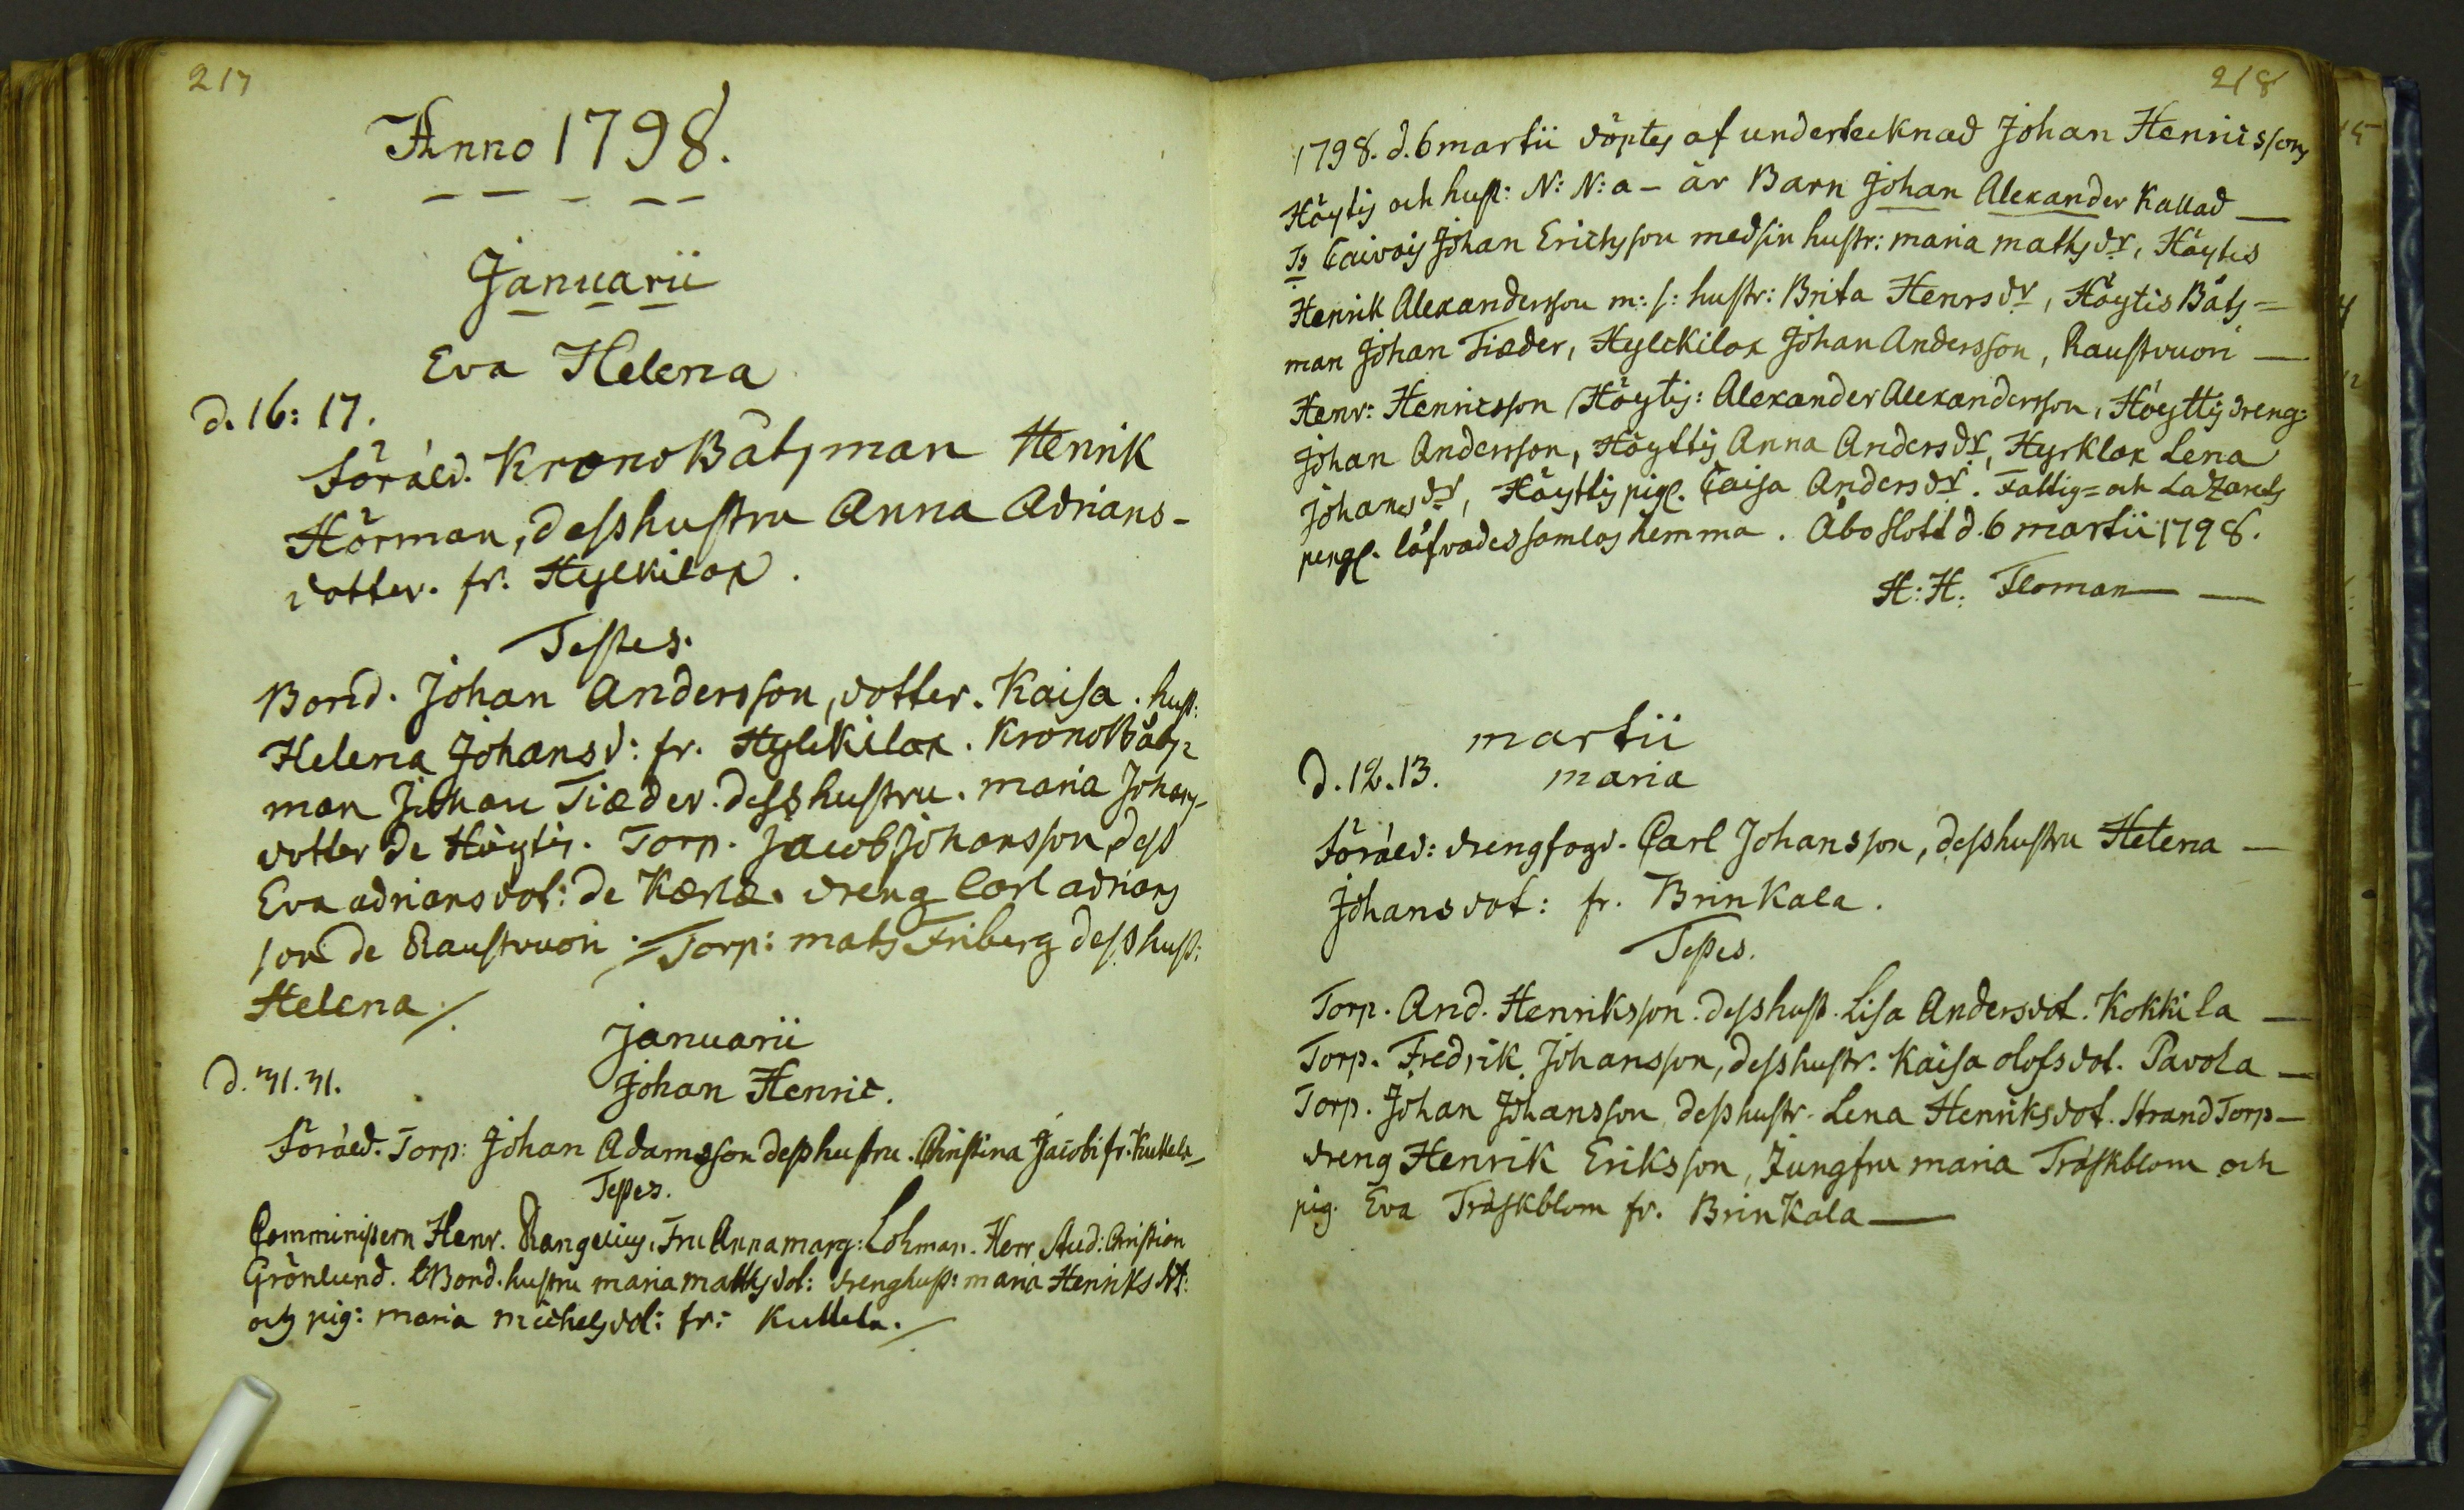 217
Anno 1798.
Januarii
Eva Helena
d. 16: 17.
Föräld. Krono Båtzman Henrik
Hörman, dess hustru Anna Adrians-
dotter. fr. Hylkilax.
Testes.
Bond. Johan Andersson, dotter. Kaisa. hust:
Helena Johansd: fr. Hylkilax. Krono Båtz-
man Johan Tiæder. dess hustru. maria Johans-
dotter de Höytis. Torp. Jacob Johansson, dess
Eva adriansdot: de Kærlæ. dreng Carl adrians
son de Raustvuori. Torp: mats Friberg dess hust:
Helena
januarii
d. 31. 31.
Johan Henric.
Föräld. Torp: Johan Adamsson dess hustru. Christina Jacobi fr. Kullela
Testes.
Comministern Henr. Rangelius, Fru Anna marg: Lohman. Herr Stud: Christian
Grönlund. Bond. hustru maria matts dot: dreng hust: maria Henriks dt:
och pig: maria michels dot: fr: Kullela.
218
1798. d. 6 martii döptes af undertecknad Johan Henricssons
Höytis och hust: N: N: a - är Barn Johan Alexander Kallad
Ts Caivois Johan Erichsson med sin hustr: maria mathsdr, Höytis
Henrik Alexandersson m: s: hustr: Brita Henrsdr, Höytis Båts=
man Johan Tiæder, Hylckilax Johan Andersson, Raustvuori
Henr: Henricsson Höytis: Alexander Alexandersson, Höyttis dreng:
Johan Andersson, Höyttis Anna Andersdr, Hyrklax Lena
Johansdr, Höyttis pig. Caisa Andersdr. Fattig= och Lazarets
peng. låfvades samlas hemma. Åbo Slott d. 6 martii 1798.
H: H: Floman
martii
d. 12. 13. maria
Föräld: drengfogd. Carl Johansson, dess hustru Helena
Johansdot: fr. Brinkala.
Testes.
Torp. And. Henriksson. dess hust. Lisa Andersdot. Kokkila
Torp. Fredrik Johansson, dess hustr. Kaisa olofsdot. Pavola
Torp. Johan Johansson dess hustr. Lena Henriksdot. Strand Torp-
dreng Henrik Eriksson, Jungfru maria Träskblom och
pig. Eva Träskblom fr. Brinkala